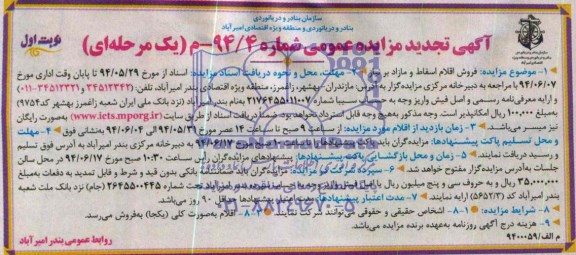 سازمان بنادر و دریانوردی
بنادر و دریانوردی و منطقه ویژه اقتصادی امیرآباد
نوبت اول
آگهی تجدید مزایده عمومی شماره ۹۴/۴-م (یک مرحله‌ای)
۱- موضوع مزایده: فروش اقلام اسقاط و مازاد بر ۲- مهلت، محل و نحوه دریافت اسناد مزایده: اسناد از مورخ ۹۴/۰۵/۲۹ تا پایان وقت اداری مورخ
۹۴/۰۶/۰۷ با مراجعه به دبیرخانه مرکزی مزایده‌گزار به آدرس: مازندران- بهشهر، زاغمرز، منطقه ویژه اقتصادی بندر امیرآباد، تلفن: (۳۴۵۱۲۳۴۳ و ۳۴۵۱۲۳۳۱-۰۱۱)
و ارایه معرفی‌نامه رسمی و اصل فیش واریز وجه به سیبا شماره ۲۱۷۶۴۵۵۰۱۱۰۰۷ به‌نام بندر امیرآباد (نزد بانک ملی ایران شعبه زاغمرز بهشهر کد۹۷۵۴)
به‌مبلغ ۱۰۰,۰۰۰ ریال امکانپذیر است. وجه مذکور به‌هیچ وجه قابل استرداد نخواهد بود. ضمناً دریافت اسناد از طریق سایت (www.iets.mporg.ir) به‌صورت رایگان
نیز میسر می‌باشد. ۳- زمان بازدید از اقلام مورد مزایده: از ساعت ۹ صبح تا ساعت ۱۴ عصر مورخ ۹۴/۰۵/۳۱ تا ۹۴/۰۶/۰۴ به‌نشانی فوق ۴- مهلت
و محل تسلیم پاکت پیشنهادها: مزایده‌گران باید پاکت پیشنهادها ساعت ۱۰:۰۰ صبح مورخ ۹۴/۰۶/۱۷ به دبیرخانه مرکزی بندر امیرآباد به آدرس فوق تسلیم
و رسید دریافت نمایند. ۵- زمان و محل بازگشایی پاکت پیشنهادها: پیشنهادهای مزایده‌گران راس ساعت ۱۰:۳۰ صبح مورخ ۹۴/۰۶/۱۷ در محل سالن
جلسات به‌آدرس مزایده‌گزار مفتوح خواهد شد. ۶- سپرده شرکت در مزایده: مزایده‌گران باید بانکی بدون قید و شرط و قابل تمدید به دفعات به‌مبلغ
۳۵,۰۰۰,۰۰۰ ریال و به حروف سی و پنج میلیون ریال یا اصل فیش واریز وجه به تحت شماره ۲۶۴۵۵۰۰۴۴۵ (جام) نزد بانک ملت شعبه
بندر امیرآباد کد (۵۶۵۲/۳) ارایه نمایند. ۷- مدت اعتبار پیشنهادها: مدت اعتبار پیشنهادها حداقل ۹۰ روز می‌باشد.
۸- شرایط مزایده: ۱-۸- اشخاص حقیقی و حقوقی می‌توانند شرکت نمایند. ۲-۸- اقلام به‌صورت کلی (یکجا) به‌فروش می‌رسد.
۹- هزینه درج آگهی روزنامه به‌عهده برنده مزایده می‌باشد.
م الف/۹۴۰۰۵۹
روابط عمومی بندر امیرآباد